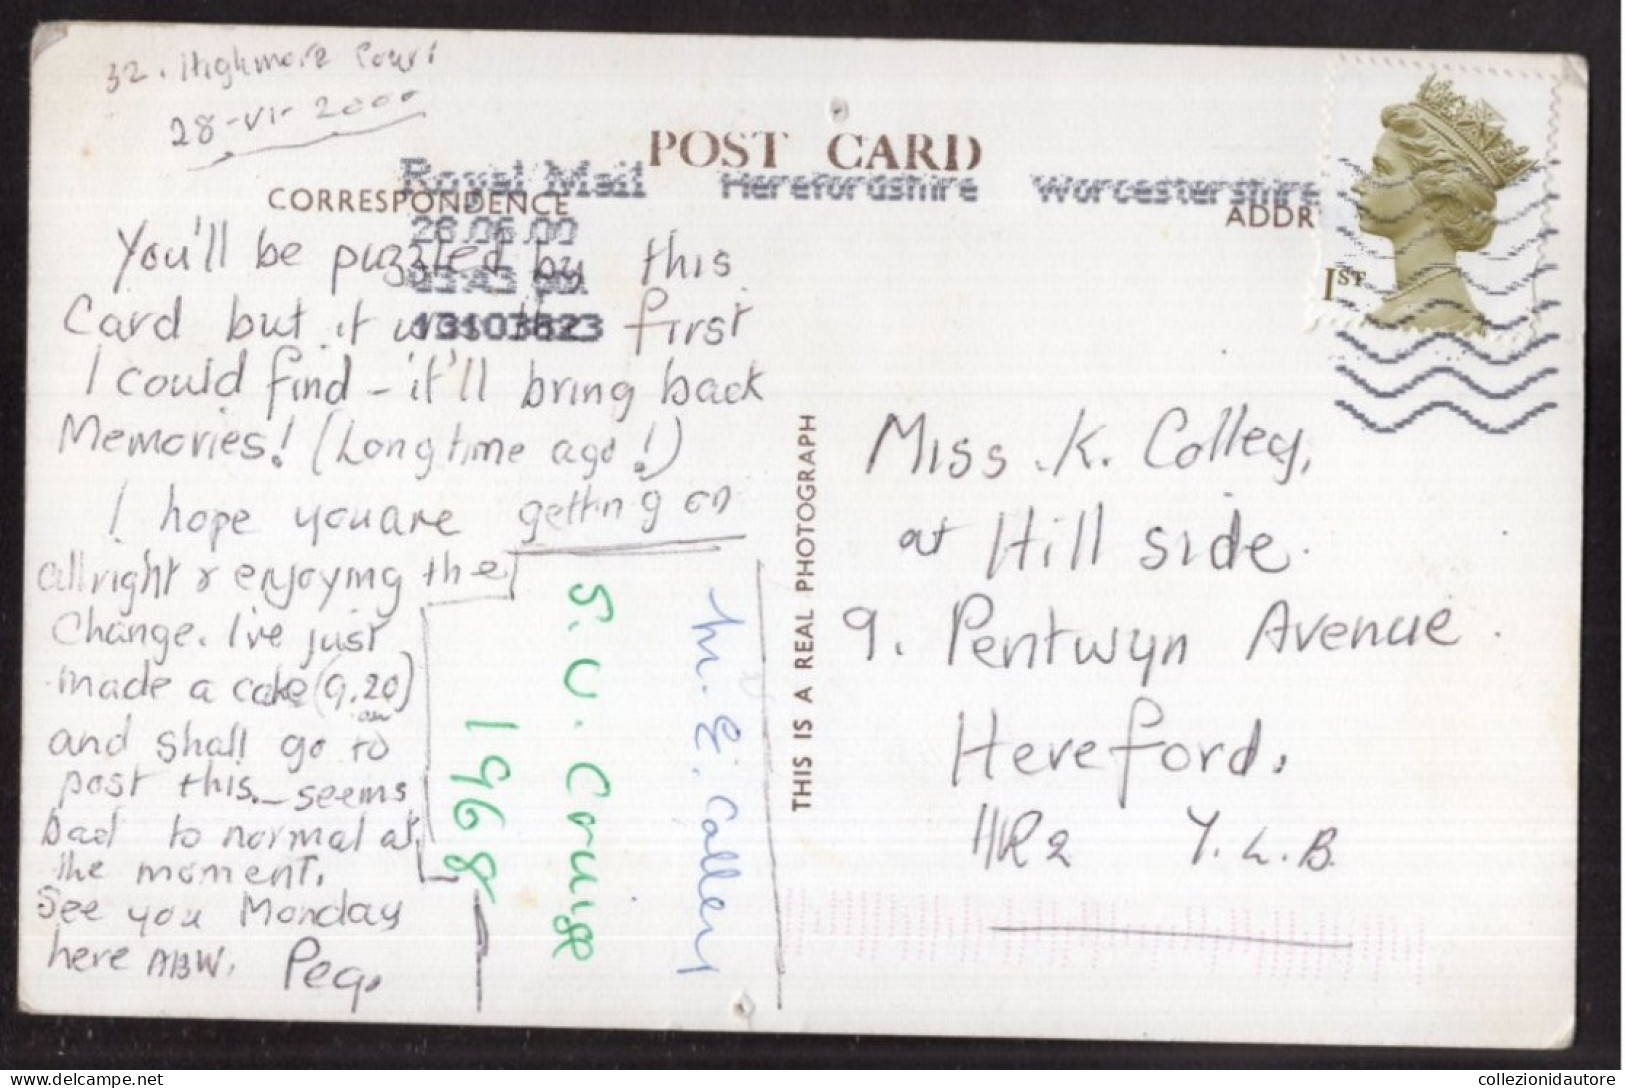 32. Highmore Court
28-VI-2000
POST CARD
Royal Mail Herefordshire Worcestershire
CORRESPONDENCE
ADDR
28.06.00
13103823
1ST
You'll be puzzled by this
Card but it was the first
I could find - it'll bring back
Memories! (Long time ago!)
I hope you are getting on
allright & enjoying the
Change. I've just
made a cake (9.20 am)
and shall go to
post this. - seems
bad to normal at
the moment.
See you Monday
here ABW. Peg.
S. U. Cruise
1968
M. E. Colley
THIS IS A REAL PHOTOGRAPH
Miss. K. Colley,
at Hill side.
9. Pentwyn Avenue.
Hereford.
HR2 Y.L.B.
collezionidautore